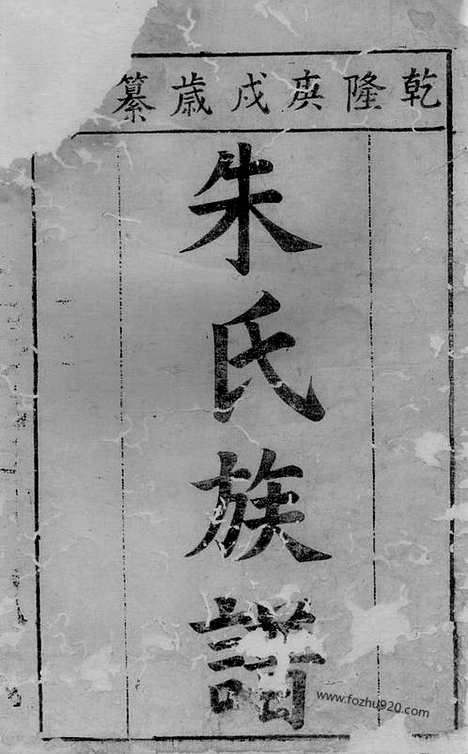 乾隆庚戌歲纂
朱氏族譜
www.fozhu920.com